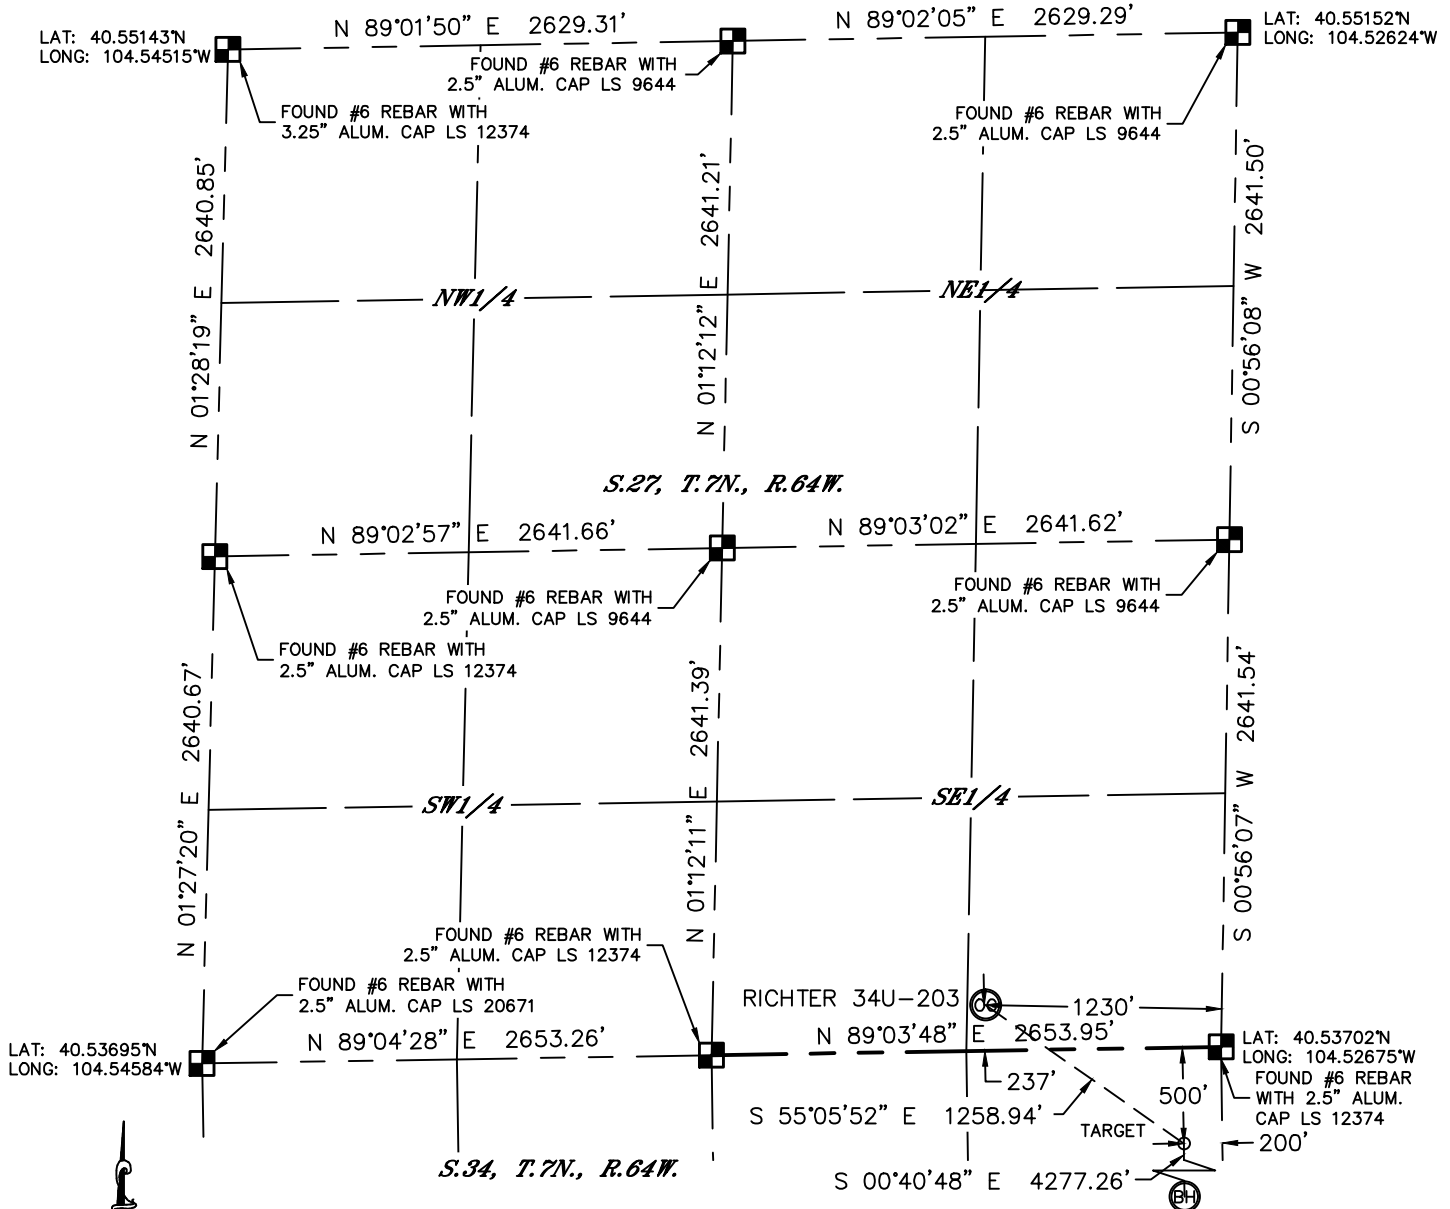 N 89°01'50" E 2629.31'
N 89°02'05" E 2629.29'
LAT: 40.55143°N
LONG: 104.54515°W
LAT: 40.55152°N
LONG: 104.52624°W
FOUND #6 REBAR WITH
2.5" ALUM. CAP LS 9644
FOUND #6 REBAR WITH
3.25" ALUM. CAP LS 12374
FOUND #6 REBAR WITH
2.5" ALUM. CAP LS 9644
N 01°28'19" E 2640.85'
N 01°12'12" E 2641.21'
S 00°56'08" W 2641.50'
NW1/4
NE1/4
S.27, T.7N., R.64W.
N 89°02'57" E 2641.66'
N 89°03'02" E 2641.62'
FOUND #6 REBAR WITH
2.5" ALUM. CAP LS 9644
FOUND #6 REBAR WITH
2.5" ALUM. CAP LS 9644
FOUND #6 REBAR WITH
2.5" ALUM. CAP LS 12374
N 01°27'20" E 2640.67'
N 01°12'11" E 2641.39'
S 00°56'07" W 2641.54'
SW1/4
SE1/4
FOUND #6 REBAR WITH
2.5" ALUM. CAP LS 12374
FOUND #6 REBAR WITH
2.5" ALUM. CAP LS 20671
RICHTER 34U-203
1230'
N 89°04'28" E 2653.26'
N 89°03'48" E 2653.95'
LAT: 40.53695°N
LONG: 104.54584°W
LAT: 40.53702°N
LONG: 104.52675°W
FOUND #6 REBAR
WITH 2.5" ALUM.
CAP LS 12374
237'
500'
S 55°05'52" E 1258.94'
TARGET
200'
S.34, T.7N., R.64W.
S 00°40'48" E 4277.26'
BH